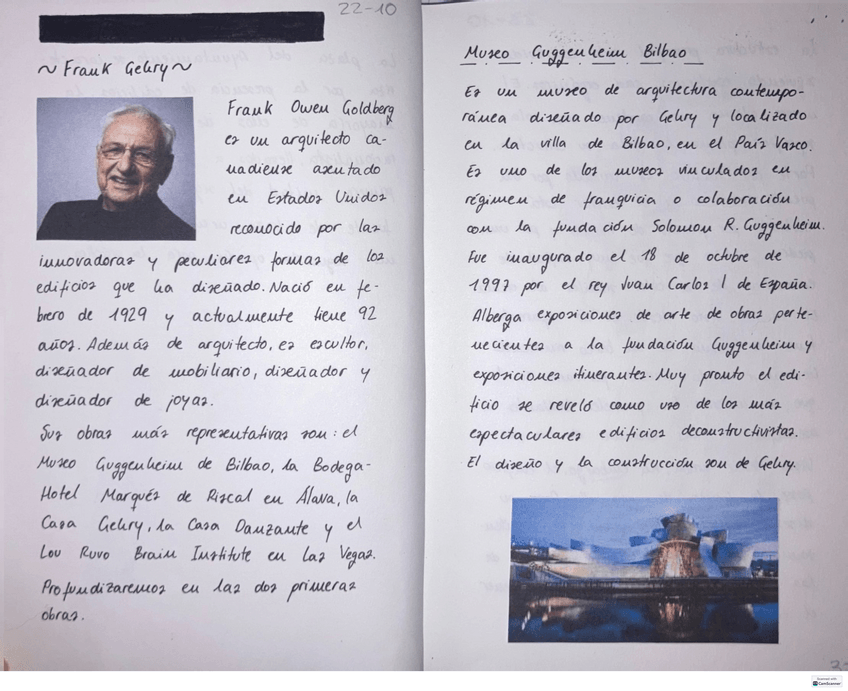 22-10
~ Frank Gehry ~
Frank Owen Goldberg
es un arquitecto ca-
nadiense asentado
en Estados Unidos
reconocido por las
innovadoras y peculiares formas de los
edificios que ha diseñado. Nació en fe-
brero de 1929 y actualmente tiene 92
años. Además de arquitecto, es escultor,
diseñador de mobiliario, diseñador y
diseñador de joyas.
Sus obras más representativas son: el
Museo Guggenheim de Bilbao, la Bodega-
Hotel Marqués de Riscal en Álava, la
Casa Gehry, la Casa Danzante y el
Lou Ruvo Brain Institute en Las Vegas.
Profundizaremos en las dos primeras
obras.
Museo Guggenheim Bilbao
Es un museo de arquitectura contempo-
ránea diseñado por Gehry y localizado
en la villa de Bilbao, en el País Vasco.
Es uno de los museos vinculados en
régimen de franquicia o colaboración
con la fundación Solomon R. Guggenheim.
Fue inaugurado el 18 de octubre de
1997 por el rey Juan Carlos I de España.
Alberga exposiciones de arte de obras perte-
necientes a la fundación Guggenheim y
exposiciones itinerantes. Muy pronto el edi-
ficio se reveló como uno de los más
espectaculares edificios deconstructivistas.
El diseño y la construcción son de Gehry.
CamScanner